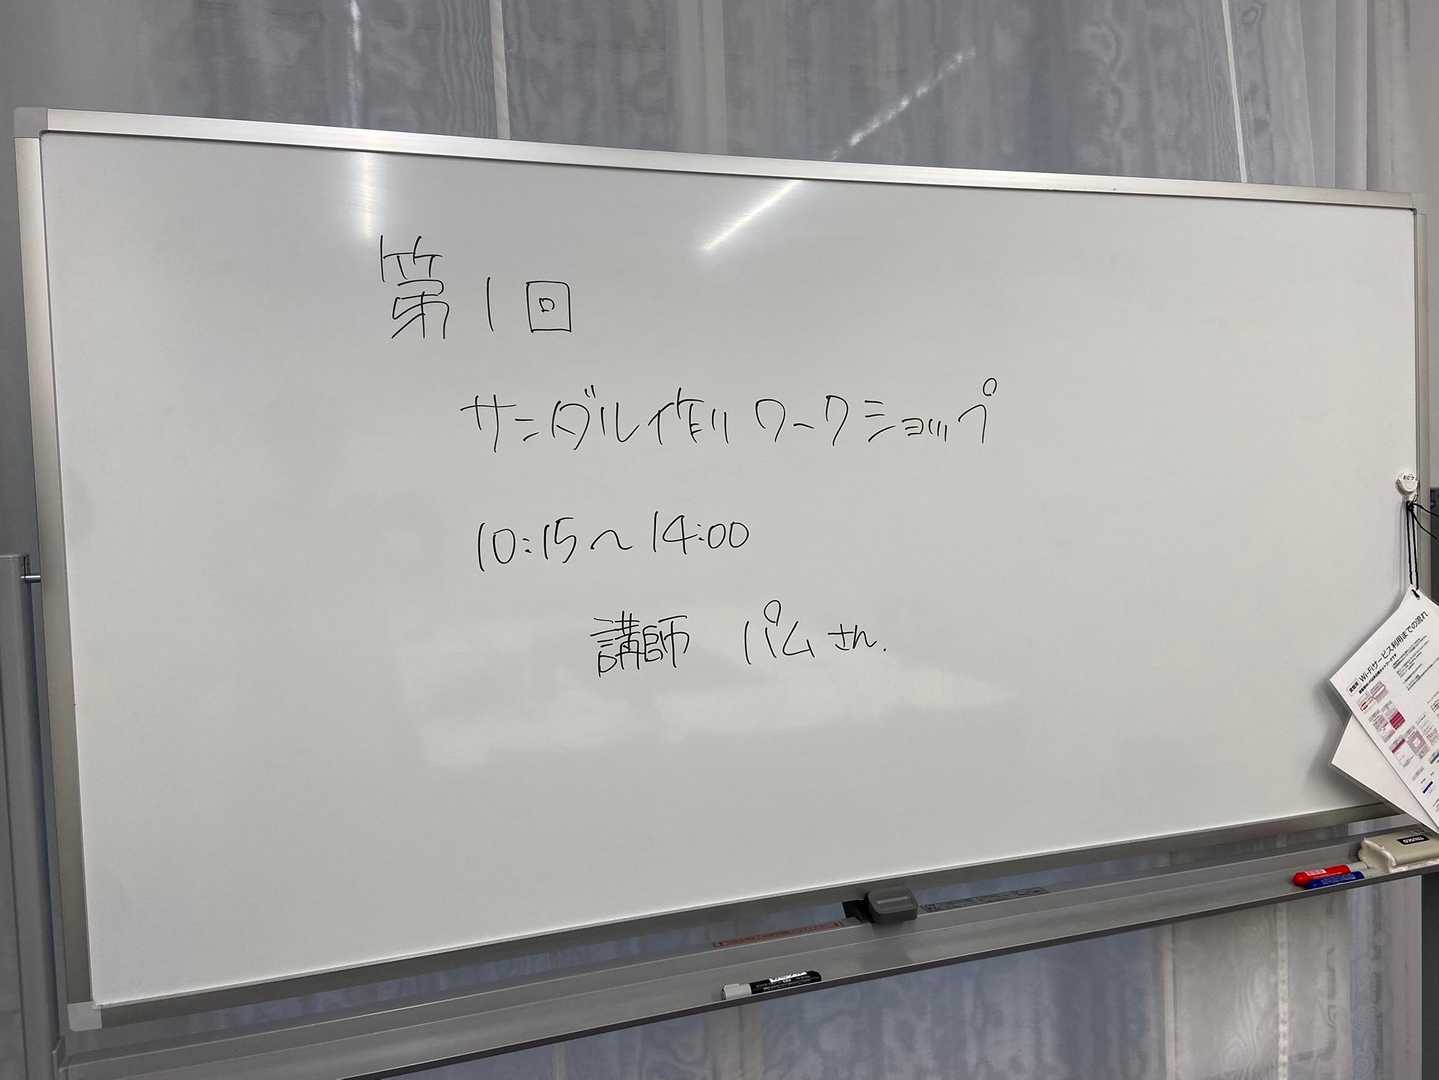 第1回
サンダル作りワークショップ
10:15〜14:00
講師 パムさん.
Wi-Fiサービス利用までの流れ